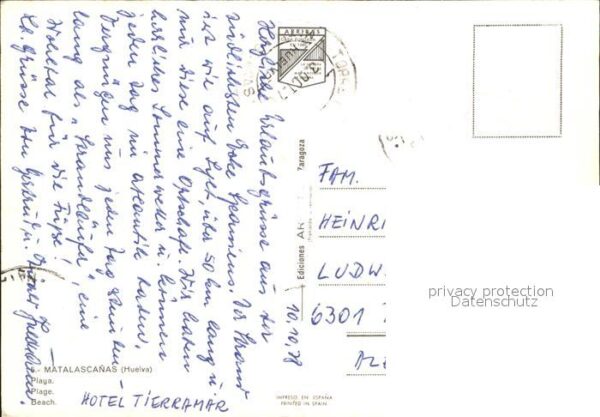 Herzliche Urlaubsgrüsse aus der
südlichsten Ecke Spaniens. Der Strand
ist wie auf Sylt, über 50 km lang u.
nur diese eine Ortschaft. Wir haben
herrliches Sommerwetter u. können
jeden Tag im Atlantik baden.
Vergnügen uns jeden Tag Stunden-
lang als "Strandläufer", eine
Wohltat für die Füße!
Lb. Grüsse von
10.10.78
HOTEL TIERRAMAR
MATALASCAÑAS (Huelva)
Playa.
Plage.
Beach.
ARRIBAS
Ediciones
Zaragoza
IMPRESO EN ESPAÑA
PRINTED IN SPAIN
FAM.
HEINRI
LUDW
6301
privacy protection
Datenschutz